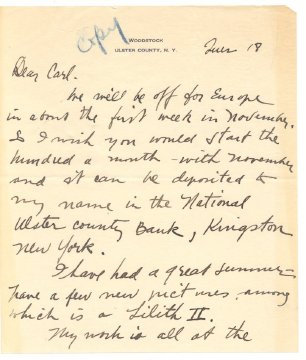 Copy
WOODSTOCK
ULSTER COUNTY, N. Y.
Tues 18
Dear Carl.
We will be off for Europe
in about the first week in November.
So I wish you would start the
hundred a month - with November
and it can be deposited to
my name in the National
Ulster County Bank, Kingston
New York.
I have had a great summer -
have a few new pictures among
which is a Lilith II.
My work is all at the